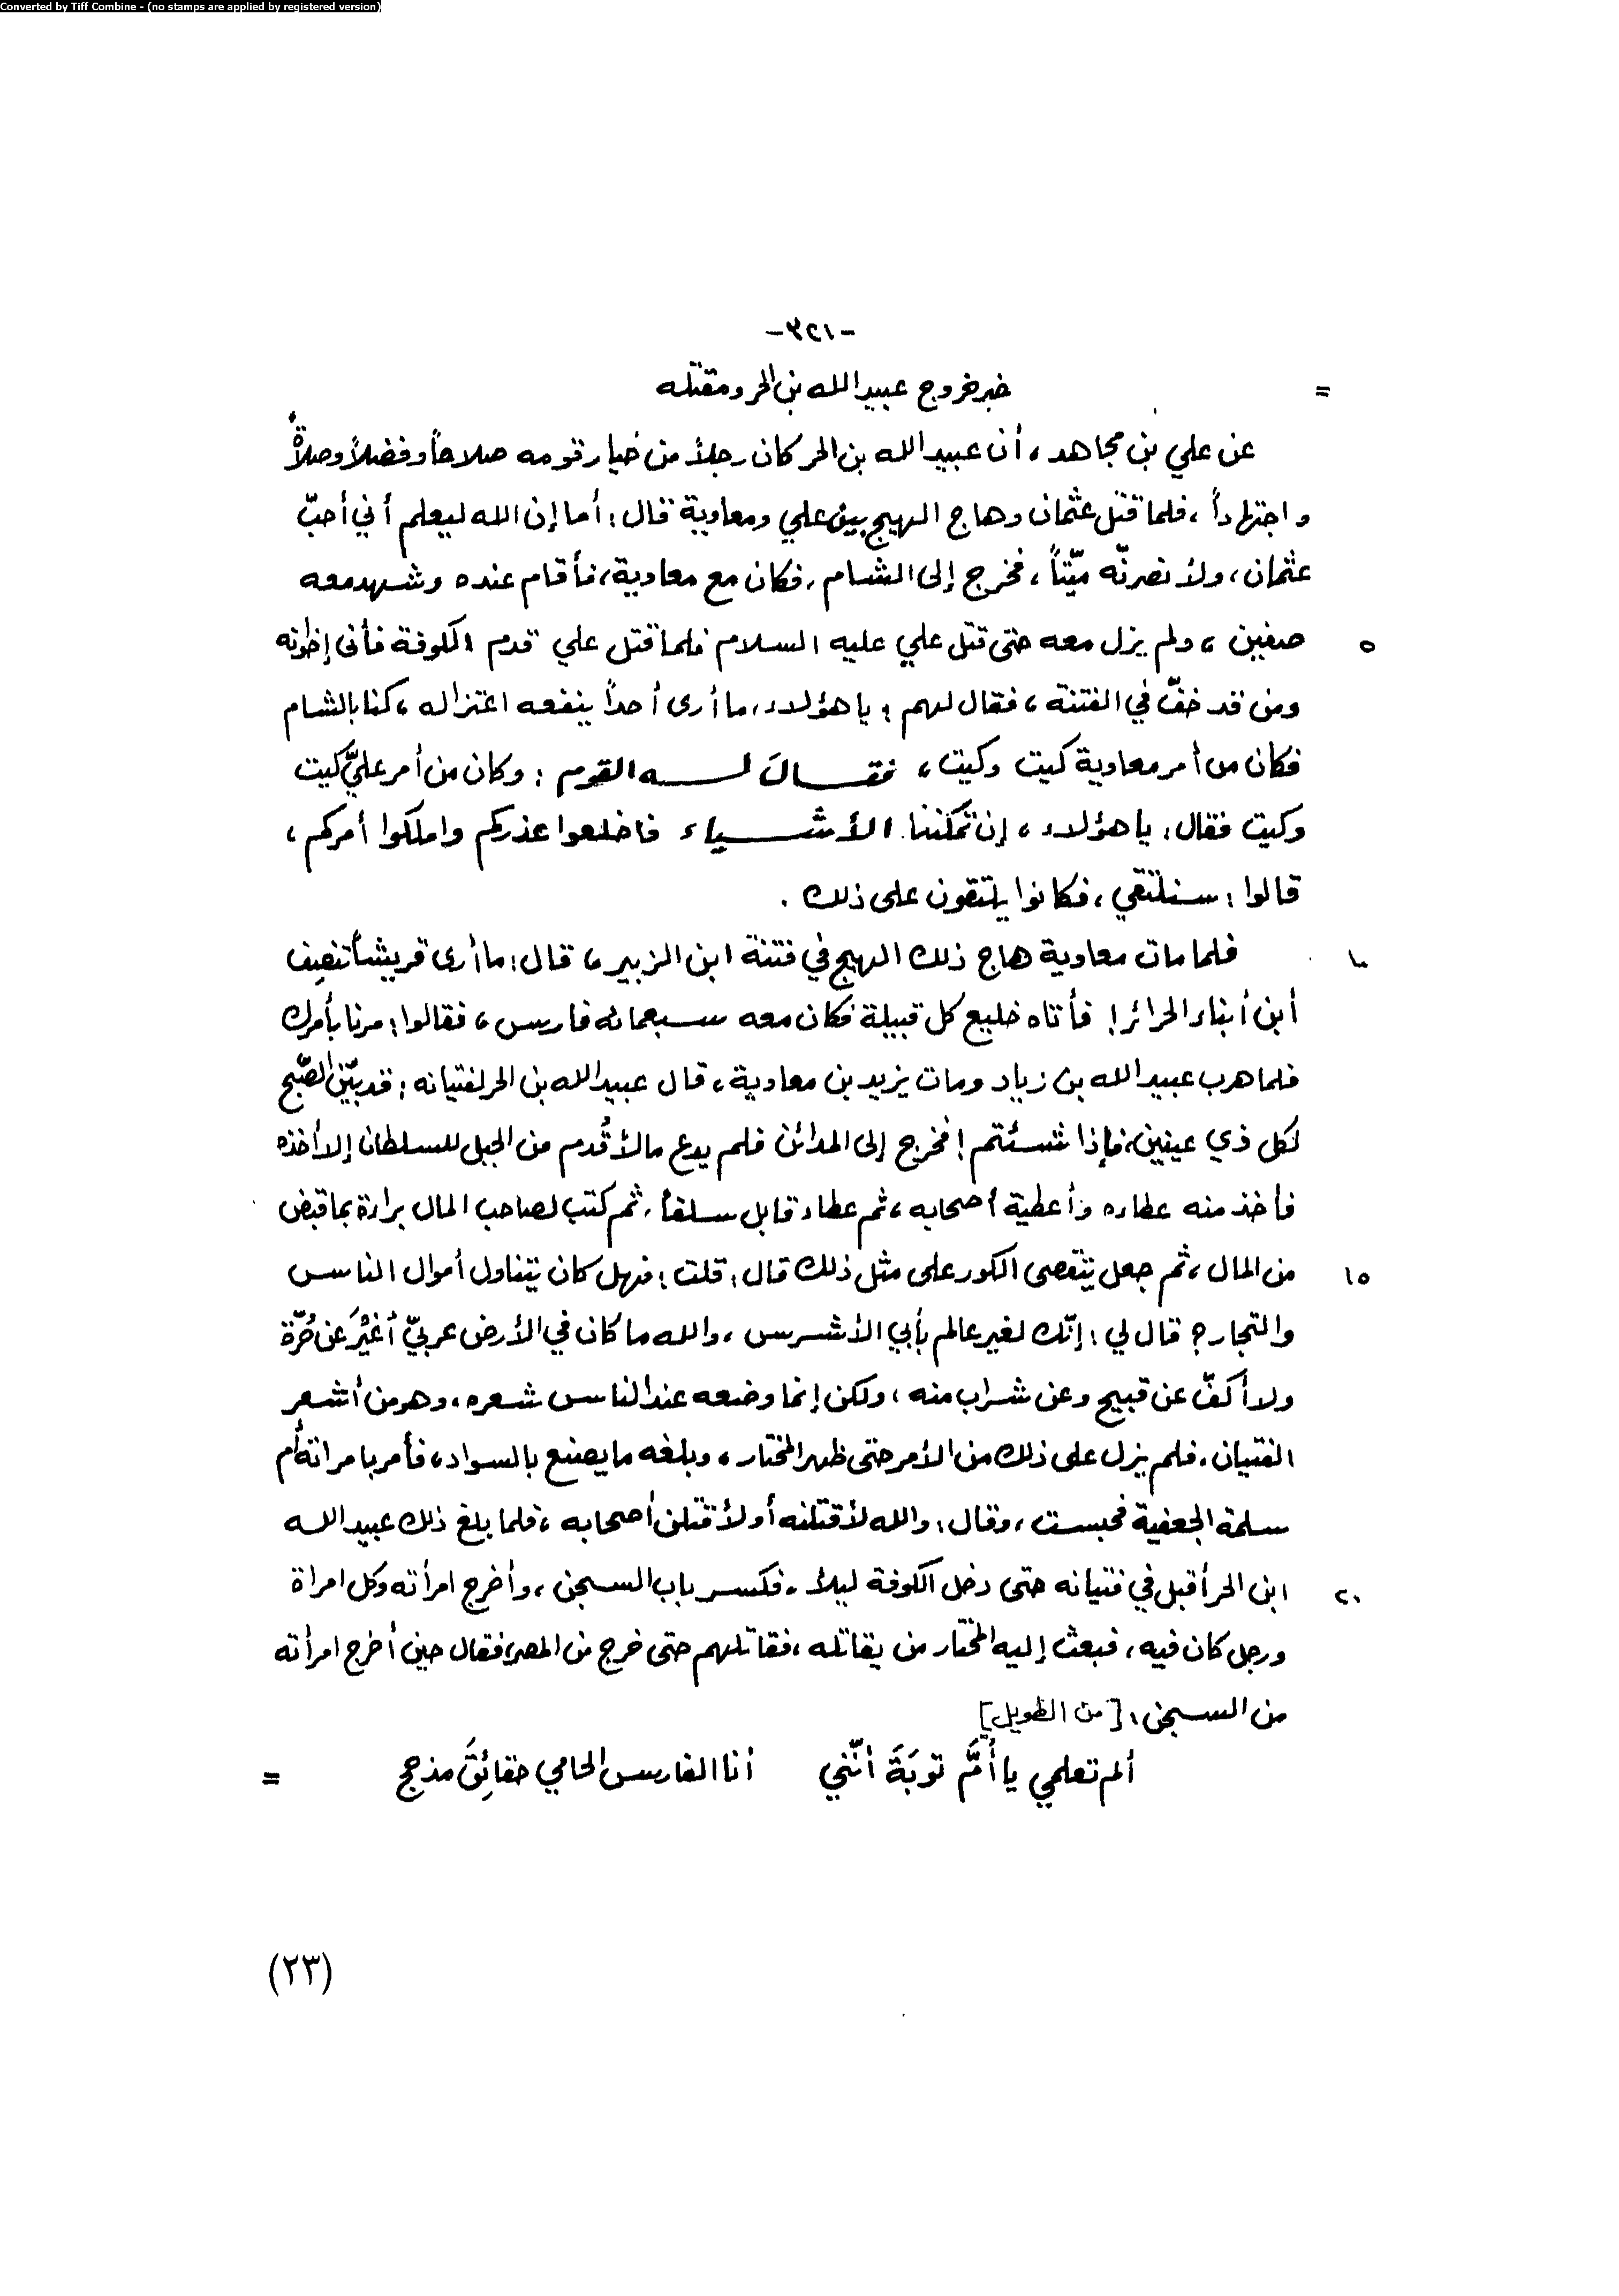 Converted by Tiff Combine - (no stamps are applied by registered version)
-٣٢١-
= خبر خروج عبيد الله بن الحر ومقتله
عن علي بن مجاهد، أن عبيد الله بن الحر كان رجلاً من خيار قومه صلاحاً وفضلاً وصلاةً
واجتهاداً، فلما قتل عثمان وهاج الهيج بين علي ومعاوية قال: أما إن الله ليعلم أني أحبّ
عثمان، ولأنصرنّه ميّتاً، فخرج إلى الشام، فكان مع معاوية، فأقام عنده وشهد معه
٥ صفين، ولم يزل معه حتى قتل علي عليه السلام فلما قتل علي قدم الكوفة فأتى إخوانه
ومن قد خفّ في الفتنة، فقال لهم: يا هؤلاء، ما أرى أحداً ينفعه اعتزاله، كنا بالشام
فكان من أمر معاوية كيت وكيت، فقال له القوم: وكان من أمر عليّ كيت
وكيت فقال: يا هؤلاء، إن تمكننا الأشياء فاخلعوا عذركم واملكوا أمركم،
قالوا: سنلتقي، فكانوا يلتقون على ذلك.
١٠ فلما مات معاوية هاج ذلك الهيج في فتنة ابن الزبير، قال: ما أرى قريشاً تنصِف
أين أبناء الحرائر! فأتاه خليع كل قبيلة فكان معه سبعمائة فارس، فقالوا: مرنا بأمرك
فلما هرب عبيد الله بن زياد ومات يزيد بن معاوية، قال عبيد الله بن الحر لفتيانه: قد بيّن الصّبح
لكل ذي عينين، فإذا شئتم! فخرج إلى المدائن فلم يدع مالاً قُدم من الجبل للسلطان إلا أخذه
فأخذ منه عطاءه وأعطية أصحابه، ثم عطاء قابل سلفاً، ثم كتب لصاحب المال براءة بما قبض
١٥ من المال، ثم جعل يتقصى الكور على مثل ذلك قال: قلت: فهل كان يتناول أموال الناس
والتجار؟ قال لي: إنّك لغير عالم بأبي الأشرس، والله ما كان في الأرض عربيّ أغْيَرَ عن حُرّة
ولا أكفّ عن قبيح وعن شراب منه، ولكن إنما وضعه عند الناس شعره، وهو من أشعر
الفتيان، فلم يزل على ذلك من الأمر حتى ظهر المختار، وبلغه ما يصنع بالسواد، فأمر بامراته أُم
سلمة الجعفية فحبست، وقال: والله لأقتلنه أو لأقتلن أصحابه، فلما بلغ ذلك عبيد الله
٢٠ ابن الحر أقبل في فتيانه حتى دخل الكوفة ليلاً، فكسر باب السجن، وأخرج امرأته وكل امراة
ورجل كان فيه، فبعث إليه المختار من يقاتله، فقاتلهم حتى خرج من المصر، فقال حين أخرج امرأته
من السجن: [من الطويل]
ألم تعلمي يا أُمَّ توبَةَ أنّني أنا الفارس الحامي حقائِقَ مذحج =
(٢٣)